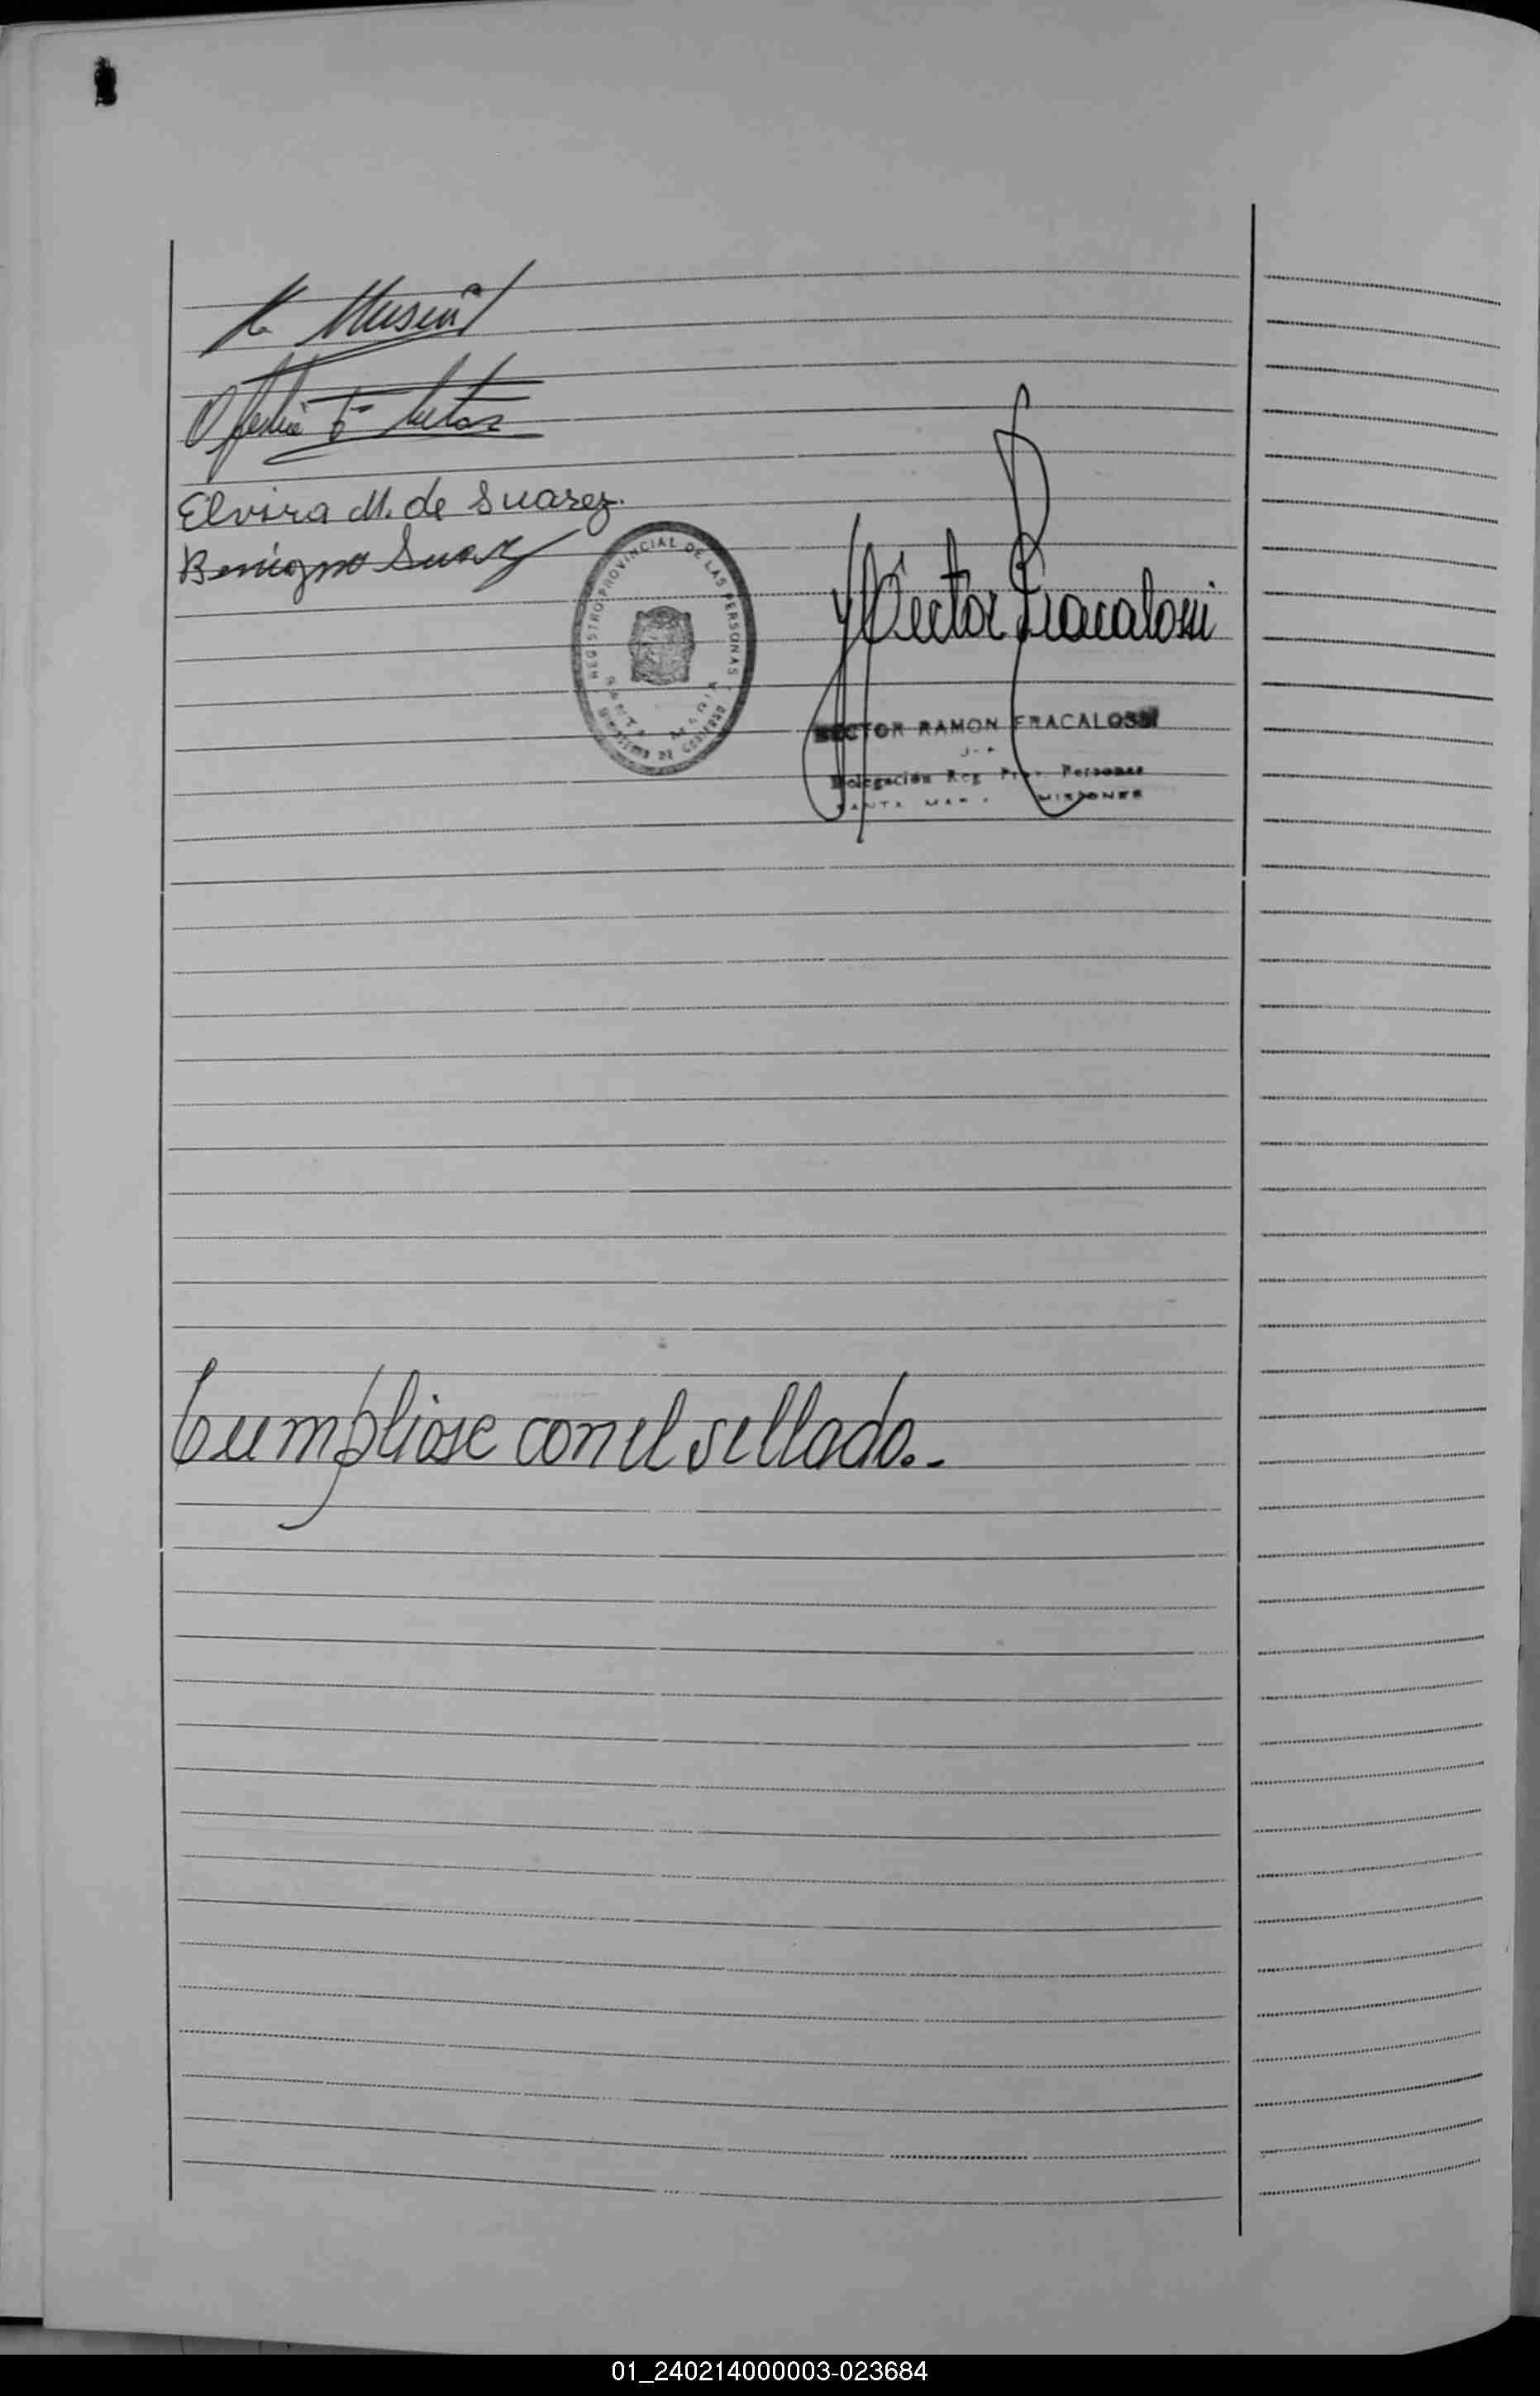 Elvira M. de Suarez.
Benigno Suarez
REGISTRO PROVINCIAL DE LAS PERSONAS
SANTA MARIA
MINISTERIO DE GOBIERNO
Hector Fracalossi
HECTOR RAMON FRACALOSSI
Delegación Reg. Prov. Personas
SANTA MARIA MISIONES
Cumpliose con el sellado.-
01_240214000003-023684